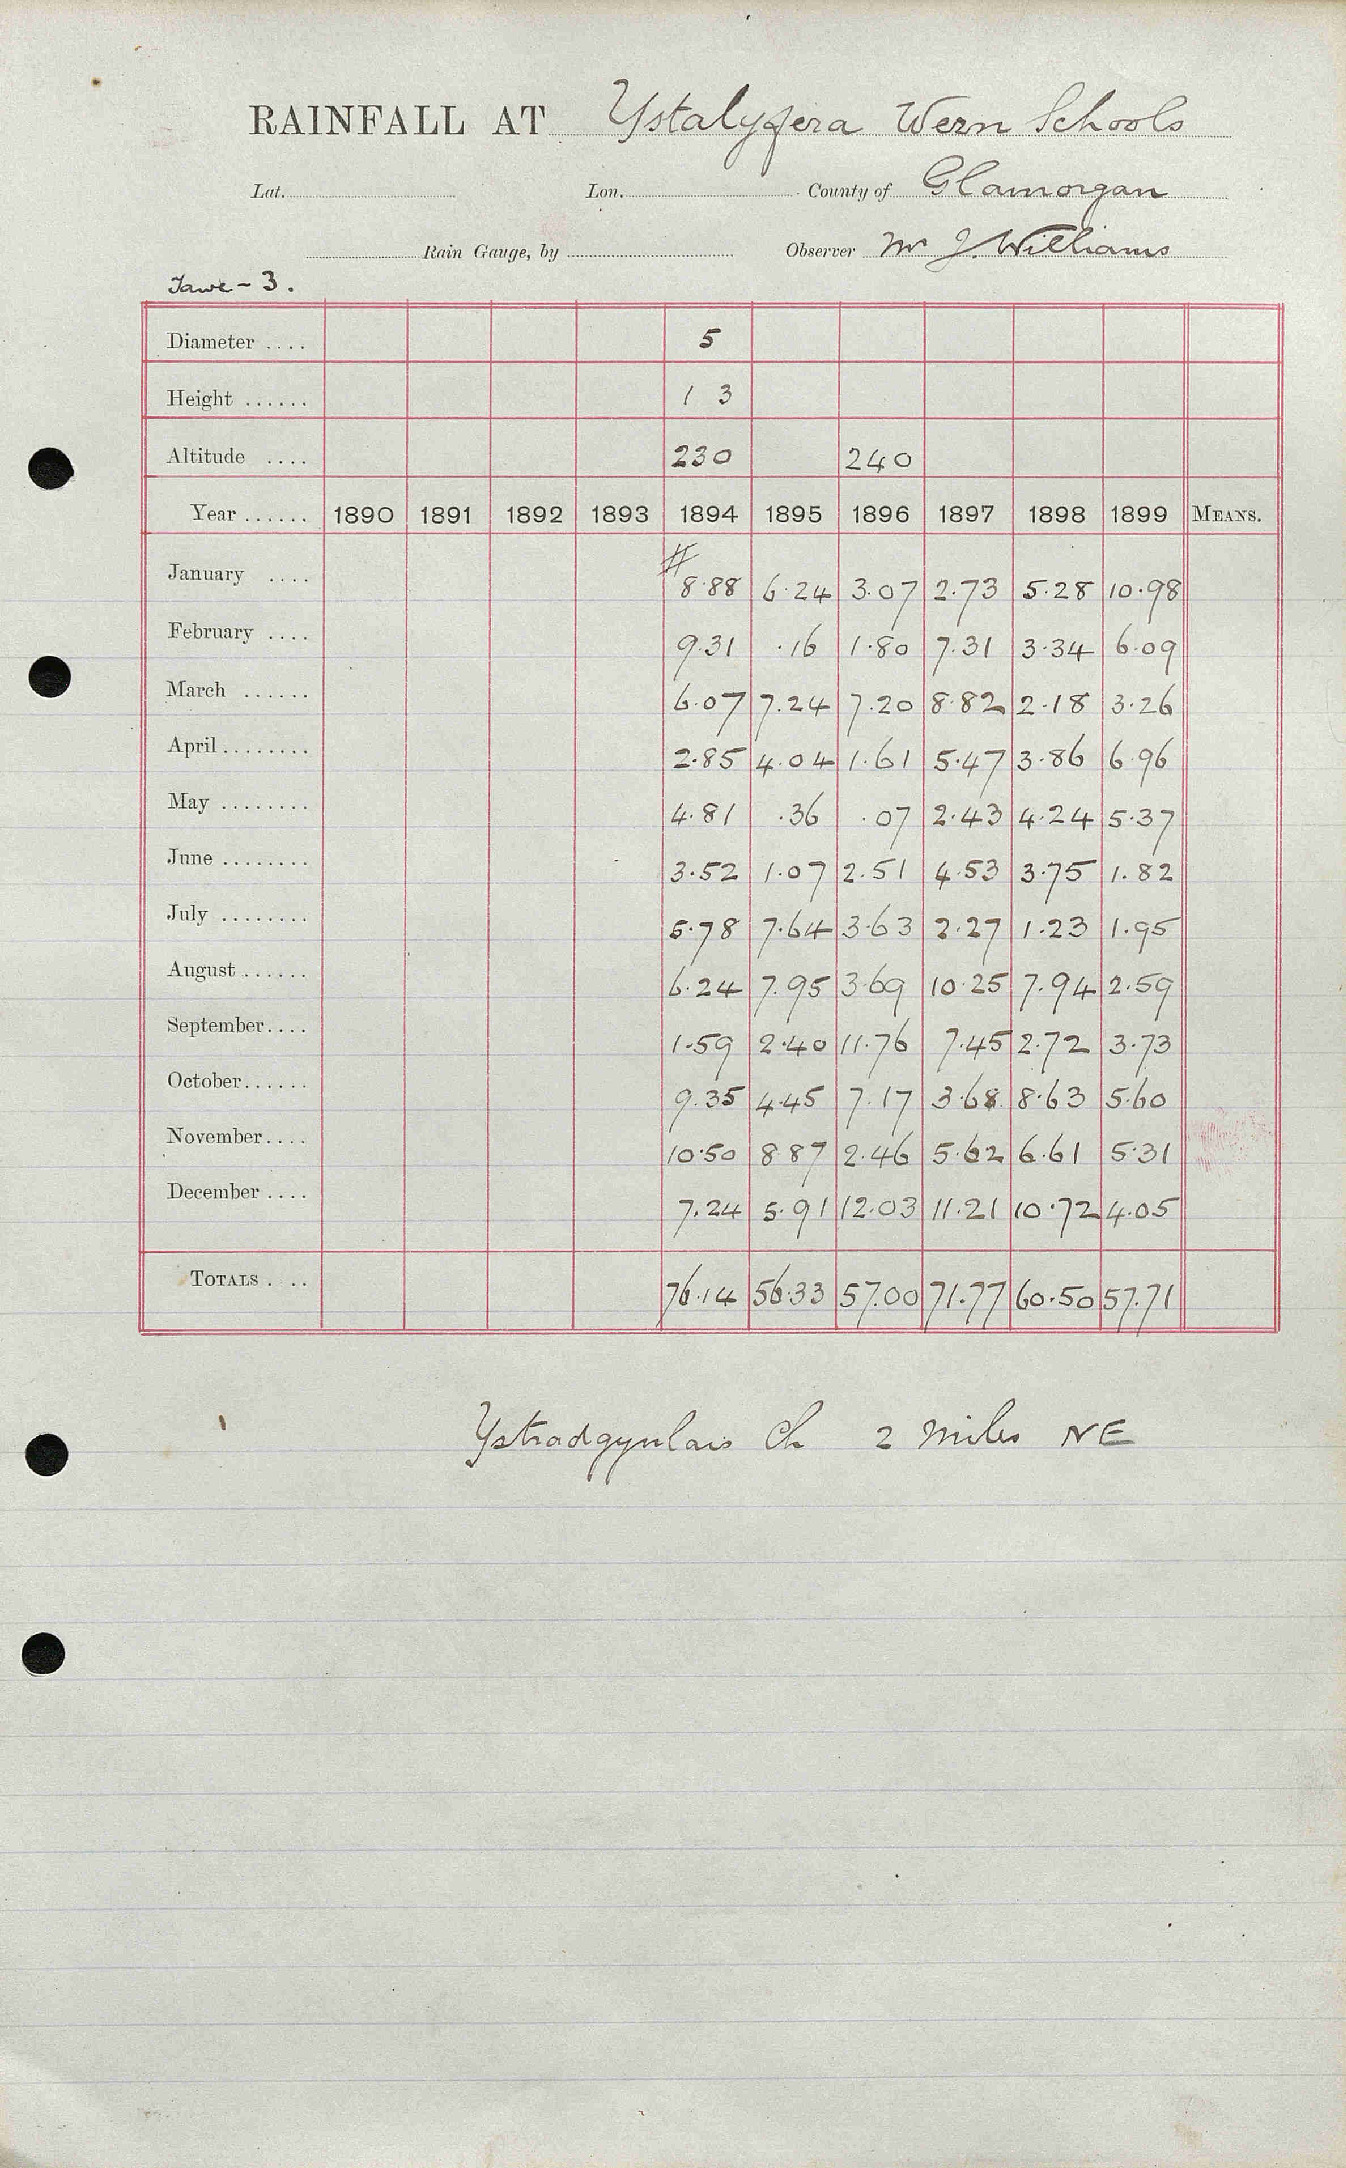 RAINFALL AT Ystalyfera Wern Schools
Lat. Lon. County of Glamorgan
Rain Gauge, by Observer Mr J. Williams
Tawe - 3.
Diameter .... 5
Height ...... 1 3
Altitude .... 230 240
Year ...... 1890 1891 1892 1893 1894 1895 1896 1897 1898 1899 MEANS.
#
January .... 8.88 6.24 3.07 2.73 5.28 10.98
February .... 9.31 .16 1.80 7.31 3.34 6.09
March ...... 6.07 7.24 7.20 8.82 2.18 3.26
April ........ 2.85 4.04 1.61 5.47 3.86 6.96
May ........ 4.81 .36 .07 2.43 4.24 5.37
June ........ 3.52 1.07 2.51 4.53 3.75 1.82
July ........ 5.78 7.64 3.63 2.27 1.23 1.95
August ...... 6.24 7.95 3.69 10.25 7.94 2.59
September.... 1.59 2.40 11.76 7.45 2.72 3.73
October...... 9.35 4.45 7.17 3.68 8.63 5.60
November.... 10.50 8.87 2.46 5.62 6.61 5.31
December .... 7.24 5.91 12.03 11.21 10.72 4.05
TOTALS . .. 76.14 56.33 57.00 71.77 60.50 57.71
Ystradgynlais Ch 2 miles NE